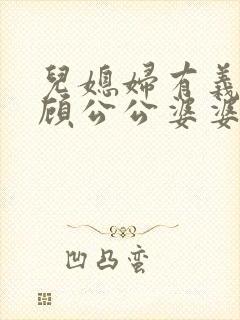 兒媳婦有義
顧公公婆婆
凹凸蠻